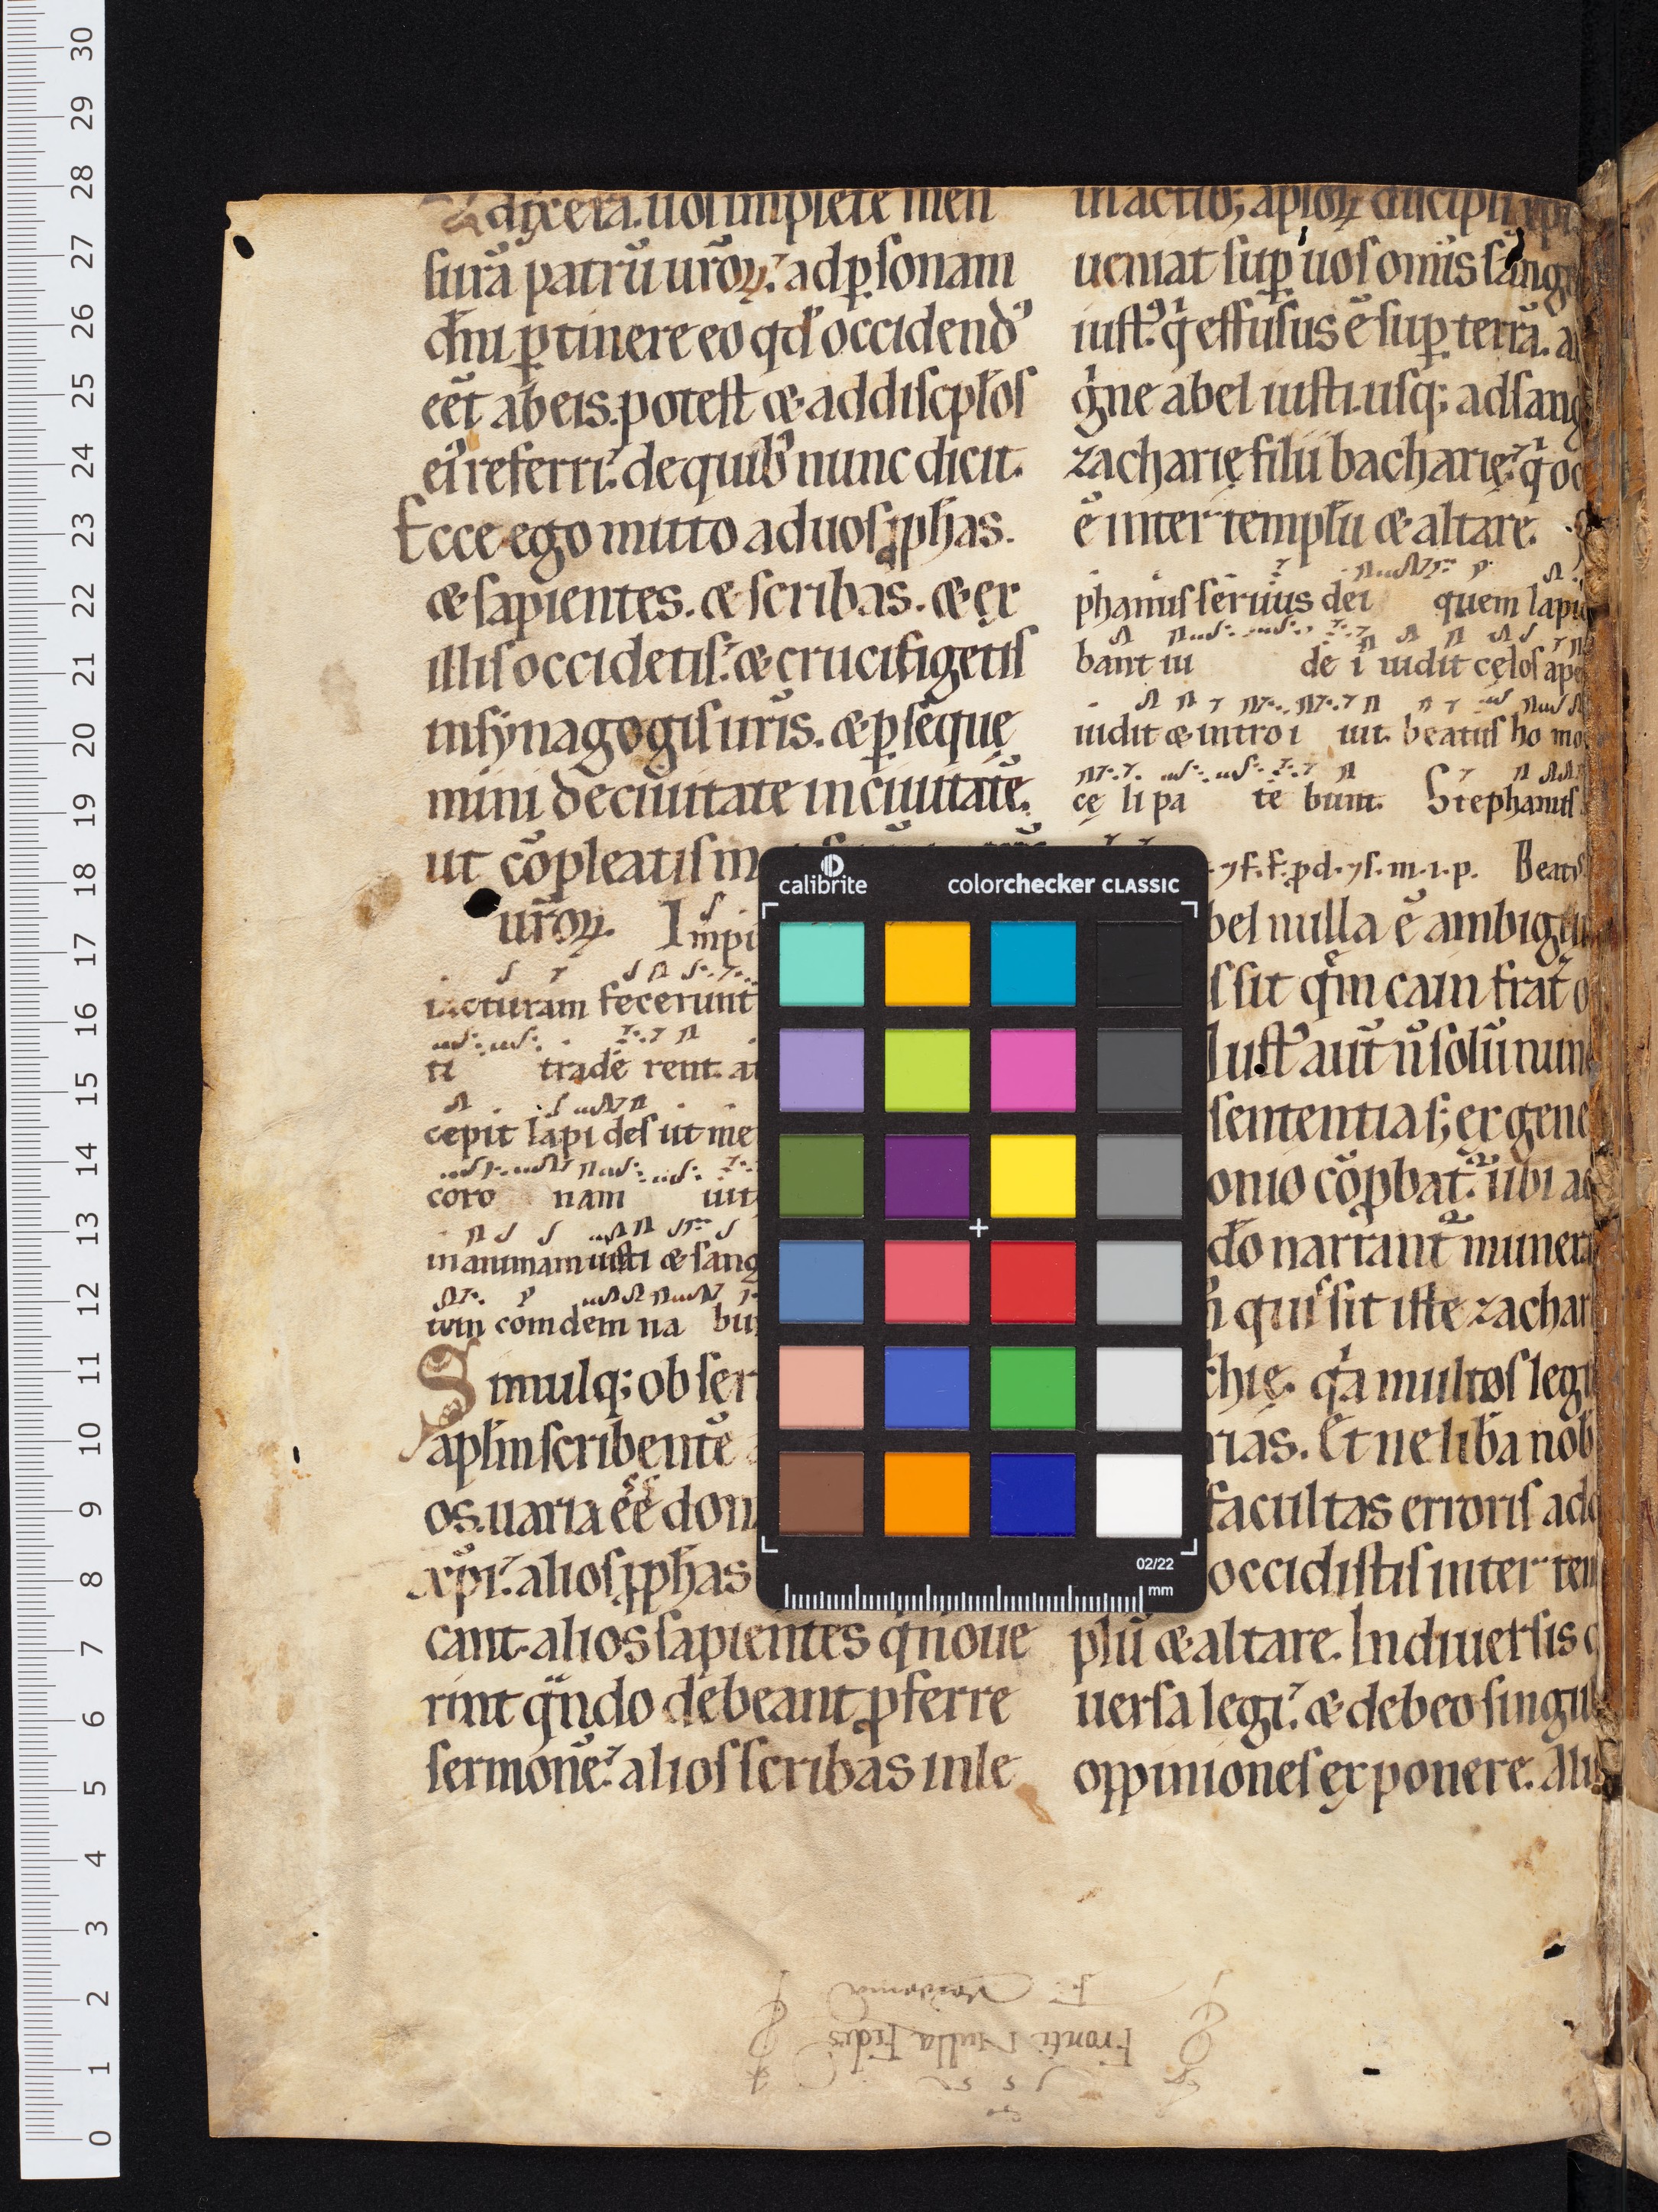 dixera. uoſ implete men
ſurā patrū urōꝝ. ad ꝑſonam
dn̄i ꝑtinere eo qđ occidendꝰ
eēt ab eis. poteſt & ad diſcpłoſ
eiꝰ referri. de quibꝰ nunc dicit.
Ecce ego mitto ad uoſ ꝓphas.
& ſapientes. & ſcribas. & ex
illiſ occidetiſ. & crucifigetiſ
in ſynagogiſ urīs. & ꝑſequę
mini de ciuitate in ciuitatē.
ut cōpleatiſ m
urōꝝ. Impi
iacturam fecerunt
ti tradē rent. at
cepit lapi deſ ut me
coro nam uit
in animam iuſti & ſang
tem comdem na bu
Simulq; obſer
aplm̄ ſcribentē
os. uaria eē don
xp̄i. alioſ ꝓphas
cant. alios ſapientes q̇ noue
rint qn̄do debeant ꝓferre
ſermonē. alioſ ſcribas in le
in actib; aploꝝ diſcipli
ueniat ſuꝑ uoſ omīs ſang
iuſtꝰ. q̇ effuſus ē ſuꝑ terrā. a
gͥne abel iuſti. uſq; ad ſang
zacharię filii bacharię. q̇ oc
ē inter templū & altare.
phanuſ ſeruus dei quem lapi
bant iu de i uidit cęloſ ape
uidit & intro i uit. beatuſ ho mo
cę li pa te bunt. Stephanuſ
.yſ.f.ꝑd.yſ.m.ı.p. Beatꝰ
bel nulla ē ambigu
ſ ſit qm̄ cain frat o
Iuſtꝰ aut n̄ ſolū nun
ſententiaſ; ex gene
onio cōꝓbat. ubi ac
do narrant munera
quiſ ſit iſte zachar
chię. qͥa multoſ legi
rias. Et ne liba nob
facultas erroriſ add
occidiſtiſ inter tem
plū & altare. In diuerſis d
uerſa legi. & debeo ſingul
oppinioneſ exponere. Alii
Fronti Nulla Fides
calibrite
colorchecker CLASSIC
02/22
mm
30
29
28
27
26
25
24
23
22
21
20
19
18
17
16
15
14
13
12
11
10
9
8
7
6
5
4
3
2
1
0